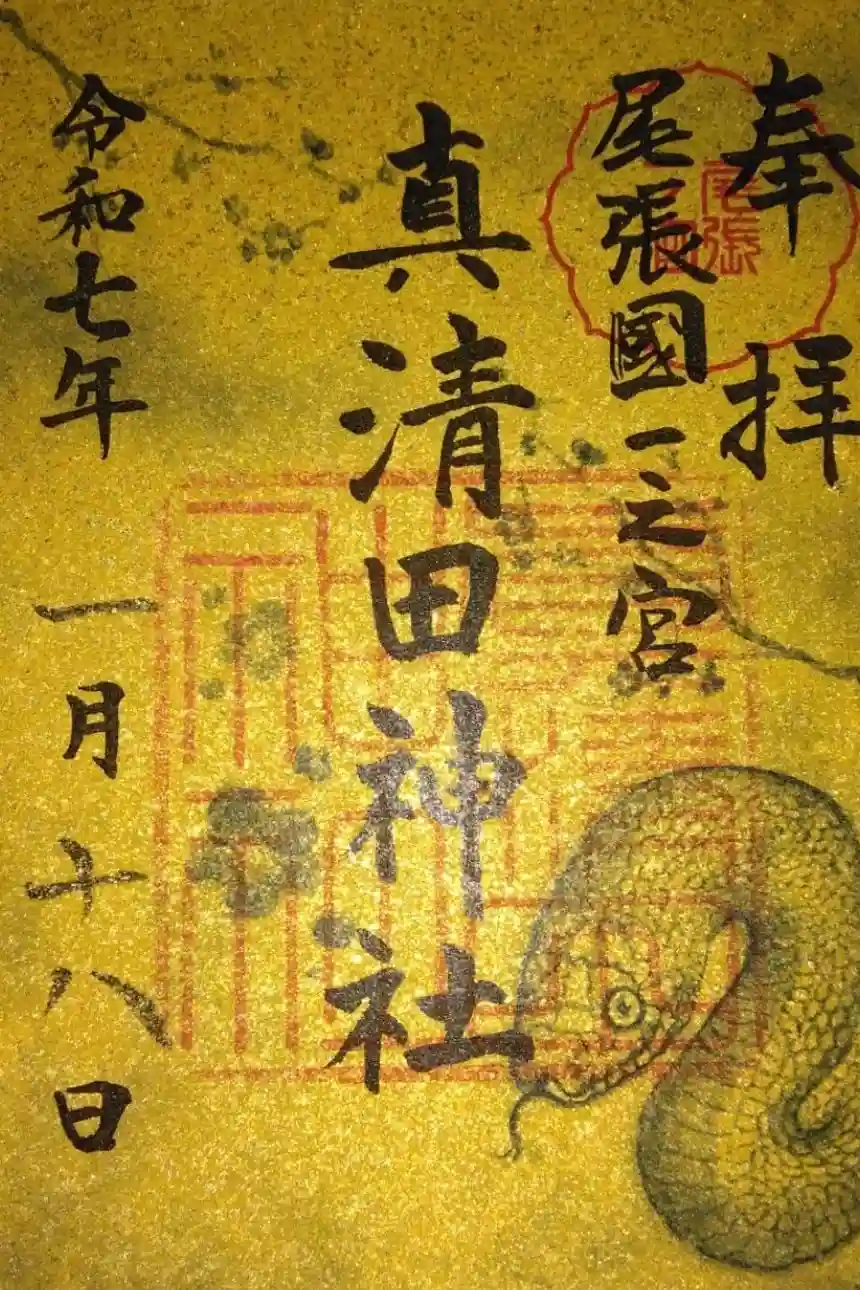 奉拝
尾張國一之宮
真清田神社
令和七年一月十八日